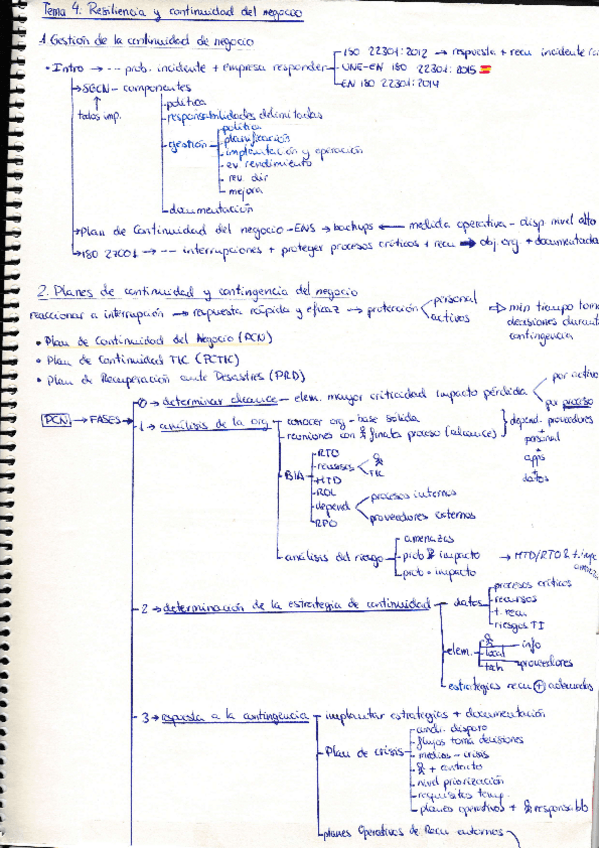 Tema 4. Resiliencia y continuidad del negocio
1. Gestión de la continuidad de negocio
• Intro → -- prob. incidente + empresa responder
ISO 22301:2012 → respuesta + recu incidente
UNE-EN ISO 22301:2015
EN ISO 22301:2014
→ SGCN - componentes
↑
todos imp.
- política
- responsabilidades delimitadas
- gestión
- política
- planificación
- implantación y operación
- ev rendimiento
- rev. dir
- mejora
- documentación
→ Plan de Continuidad del negocio - ENS → backups ← medida operativa - disp. nivel alto
→ ISO 27001 → -- interrupciones + proteger procesos críticos + recu → obj. org + documentada
2. Planes de continuidad y contingencia del negocio
reaccionar a interrupción → respuesta rápida y eficaz → protección
personal
activos
⇒ min tiempo toma
decisiones durante
contingencia
• Plan de Continuidad del Negocio (PCN)
• Plan de Continuidad TIC (PCTIC)
• Plan de Recuperación ante Desastres (PRD)
PCN → FASES
0 → determinar alcance - elem. mayor criticidad impacto pérdida
por activo
por proceso
1 → análisis de la org
- conocer org - base sólida
- reuniones con finales proceso (alcance)
depend. proveedores
+
personal
+
apps
+
datos
- BIA
- RTO
- recursos
TIC
- MTD
- ROL
- depend
procesos internos
proveedores externos
- RPO
- análisis del riesgo
amenazas
- prob & impacto → MTD/RTO & t.
- prob • impacto
2 → determinación de la estrategia de continuidad
datos
- procesos críticos
- recursos
- t. recu
- riesgos TI
- elem.
local
tech
info
proveedores
- estrategias recu (+) adecuadas
3 → respuesta a la contingencia
implantar estrategias + documentación
- Plan de crisis
cond. disparo
- flujos toma decisiones
- medios - crisis
+ contacto
- nivel priorización
- requisitos temp.
- planes operativos + responsable
- planes Operativos de Recu entornos